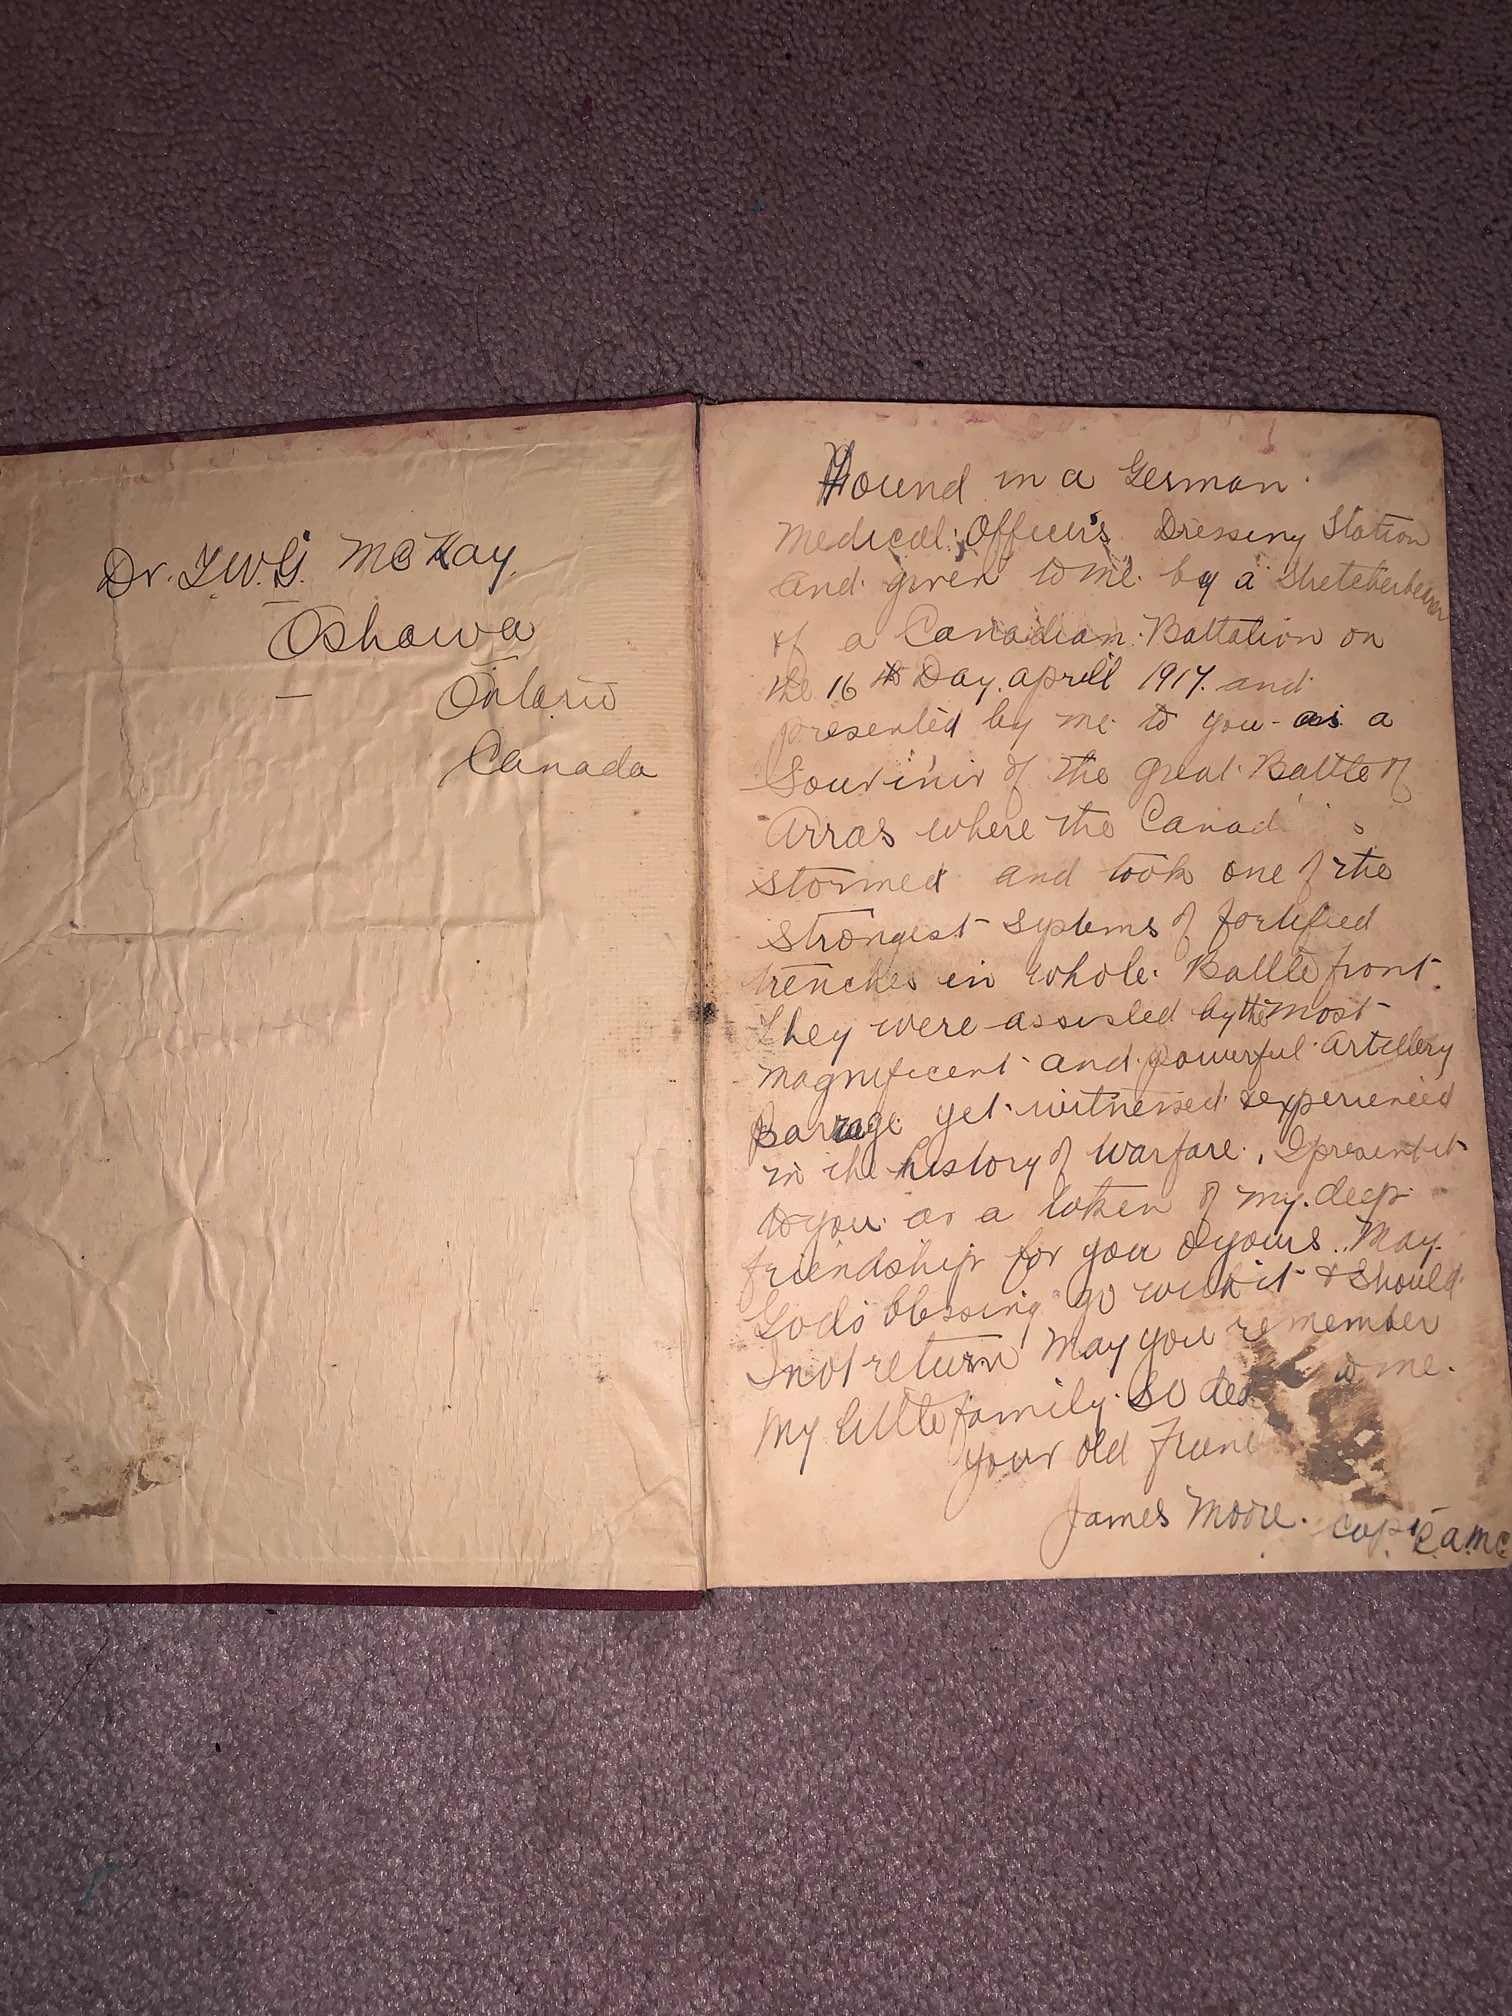 Dr. T.W.G. McKay
Oshawa
Ontario
Canada
Found in a German
Medical Officer's Dressing Station
and given to me by a Stretcherbearer
of a Canadian Battalion on
the 16th Day aprill 1917. and
presented by me to you as a
Souvinir of the great Battle of
Arras where the Canad s
stormed and took one of the
strongest systems of fortified
trenches in whole Battle front.
They were assisted by the most
magnificent and powerful artillery
Barrage yet witnessed & experienced
in the history of warfare. I present it
to you as a token of my deep
friendship for you & yours. May
God's blessing go with it & Should
I not return May you remember
My little family so dea to me.
your old Frien
James Moore. Capt C.A.M.C